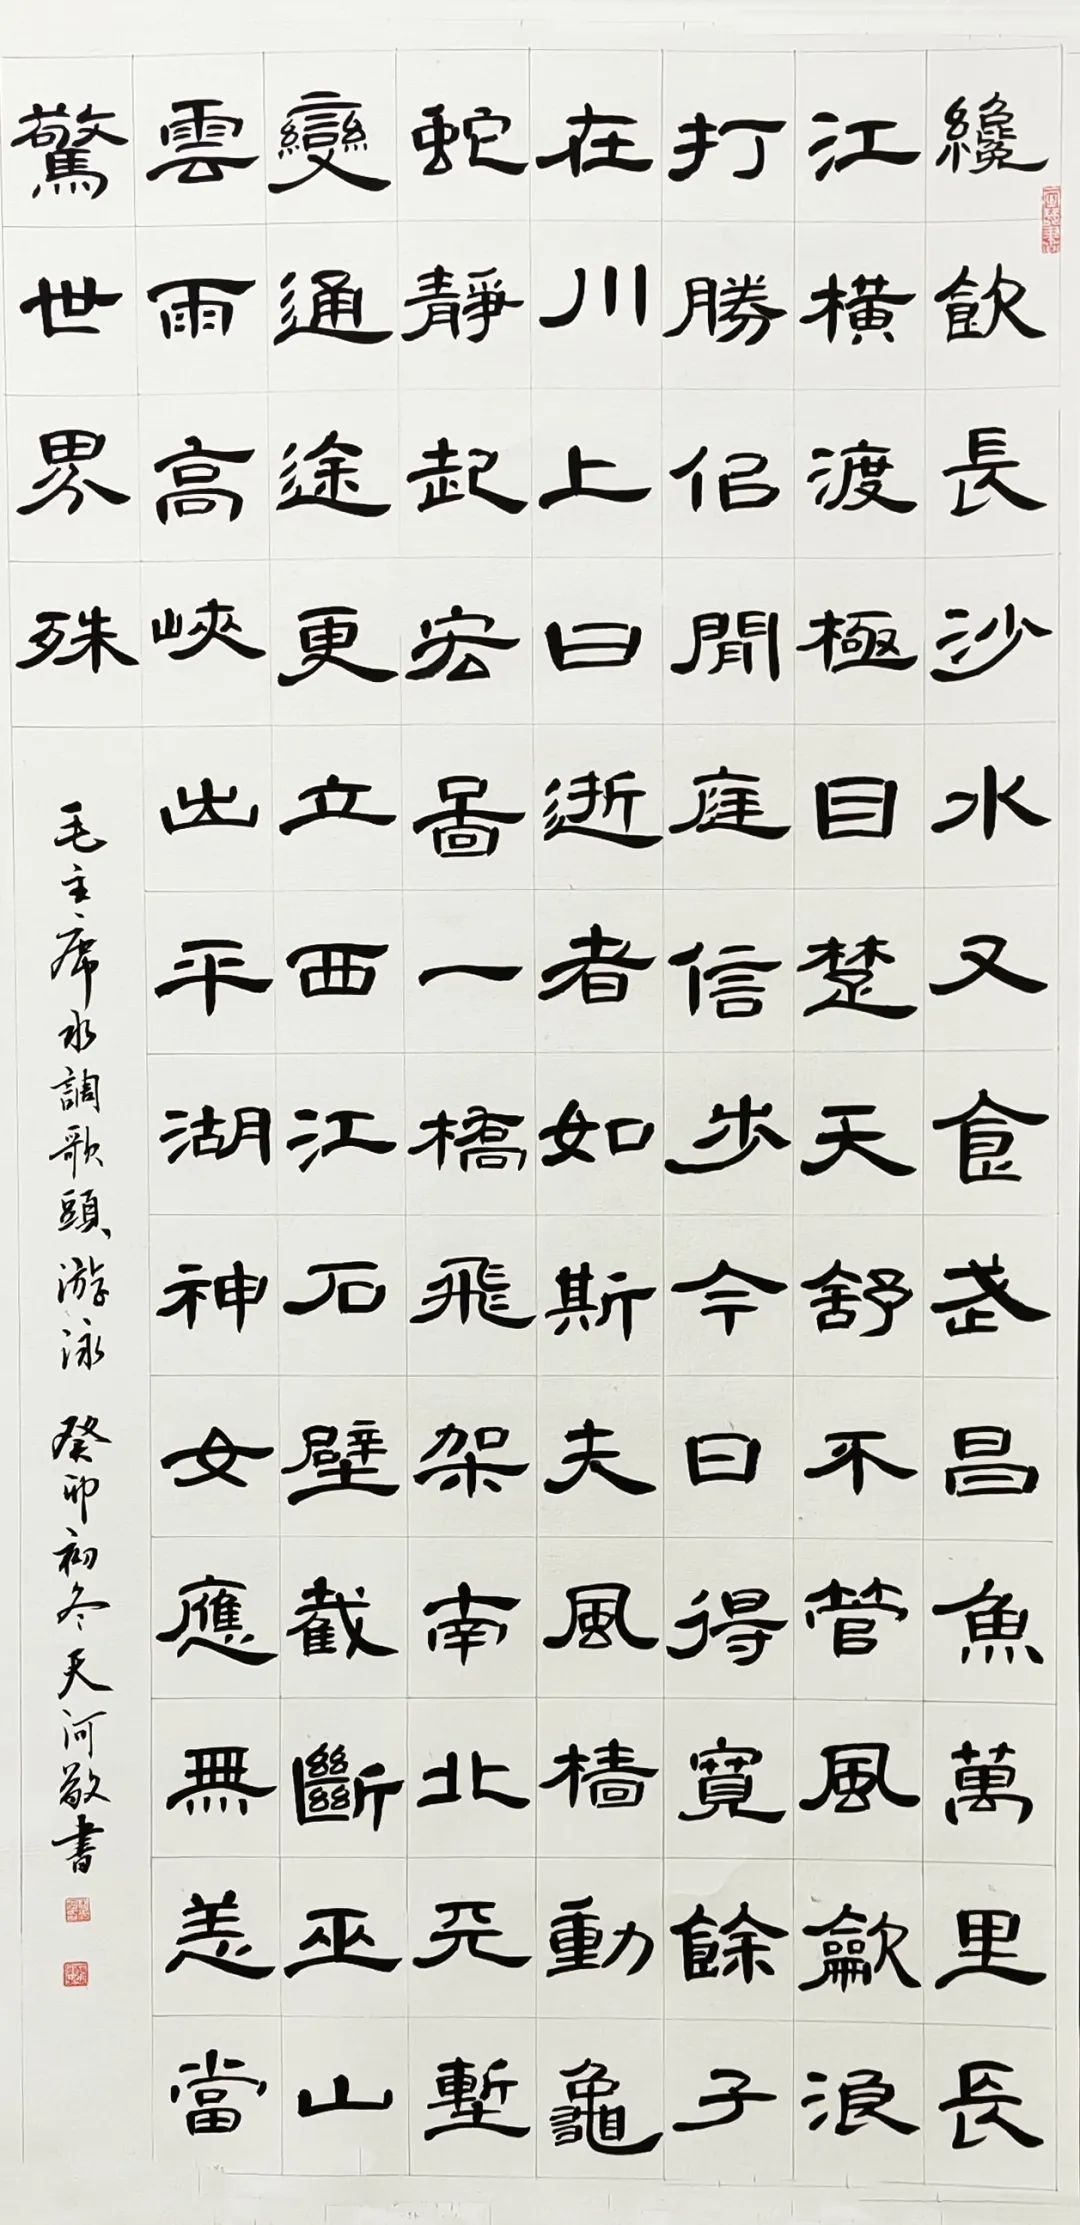 纔飲長沙水又食武昌魚萬里長
江橫渡極目楚天舒不管風龡浪
打勝佀閒庭信步今日得寬餘子
在川上曰逝者如斯夫風檣動龜
蛇靜起宏啚一橋飛架南北天塹
變通途更立西江石壁截斷巫山
雲雨高峽出平湖神女應無恙當
驚世界殊
毛主席水調歌頭游泳 癸卯初冬天河敬書